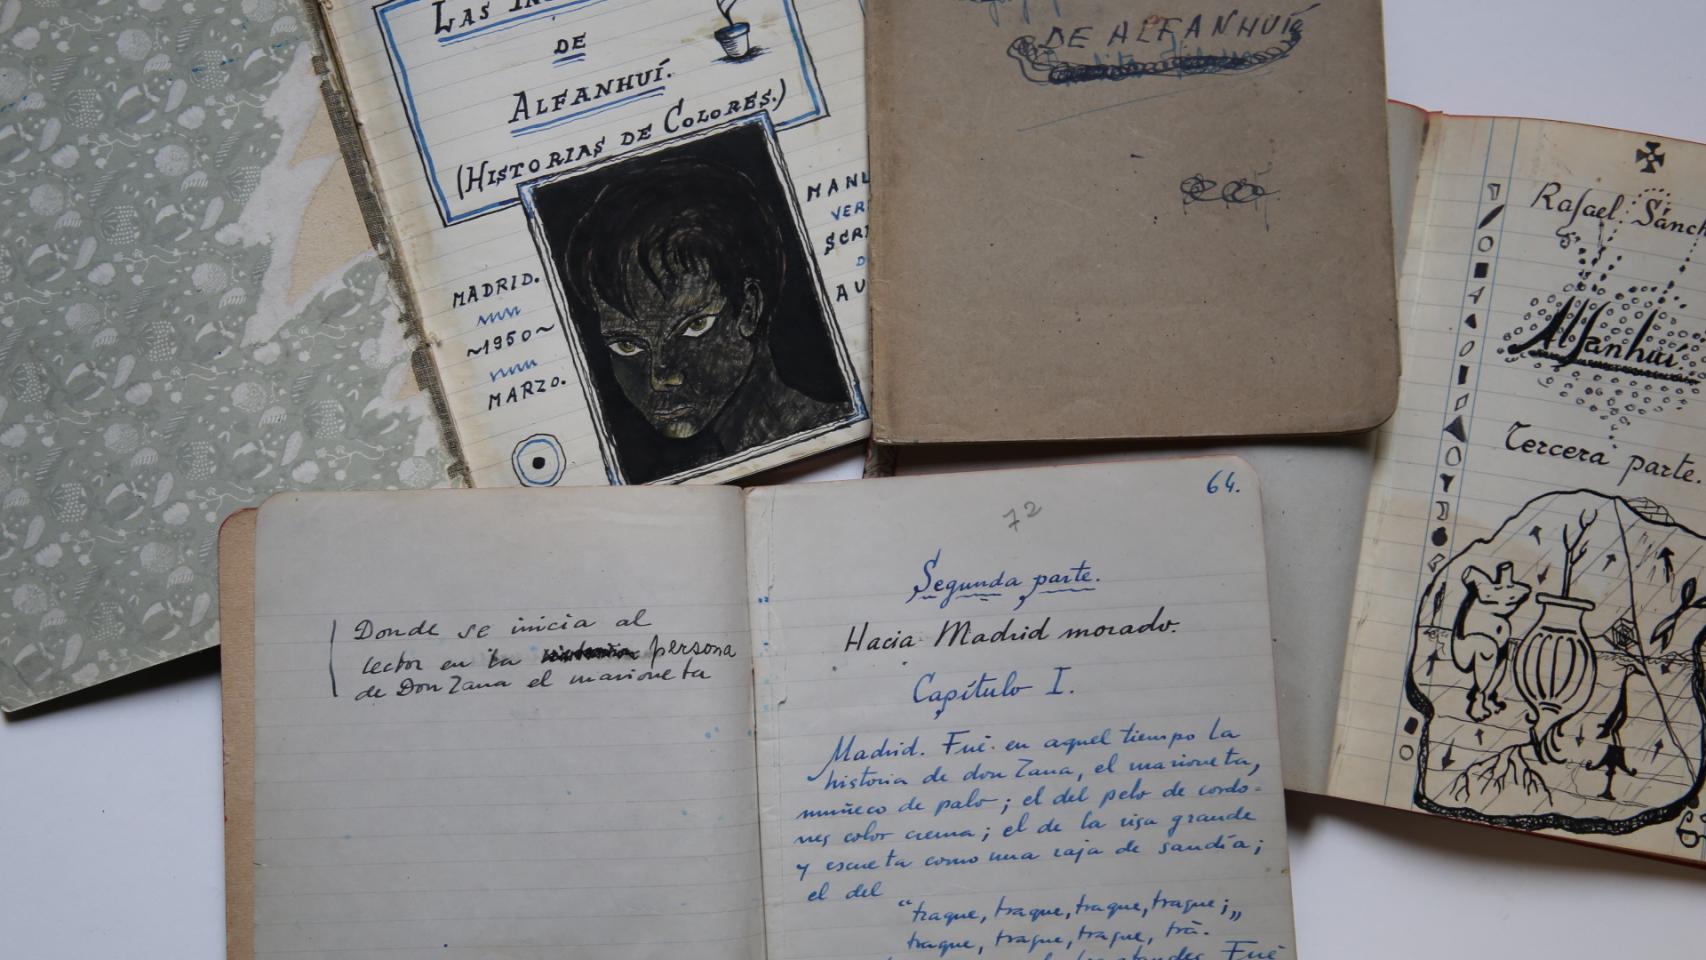 LAS
DE
ALFANHUÍ.
(HISTORIAS DE COLORES.)
MADRID.
~1950~
MARZO.
DE ALFANHUÍ
Rafael Sánch
Alfanhuí.
Tercera parte.
Donde se inicia al
lector en la persona
de Don Zana el marioneta
64.
72
Segunda parte.
Hacia Madrid morado.
Capítulo I.
Madrid. Fué en aquel tiempo la
historia de don Zana, el marioneta,
muñeco de palo; el del pelo de cordo-
nes color crema; el de la risa grande
y escueta como una raja de sandía;
el del
“traque, traque, traque, traque;„
traque, traque, traque, trá.
Fué